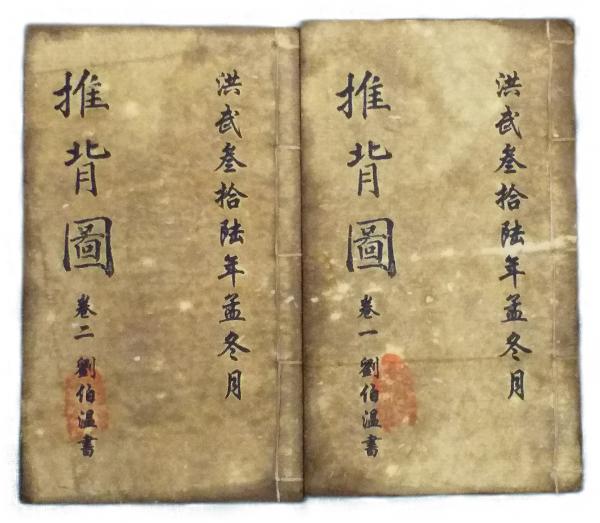 洪武叁拾陆年孟冬月
推背圖 卷一 劉伯温書
洪武叁拾陆年孟冬月
推背圖 卷二 劉伯温書